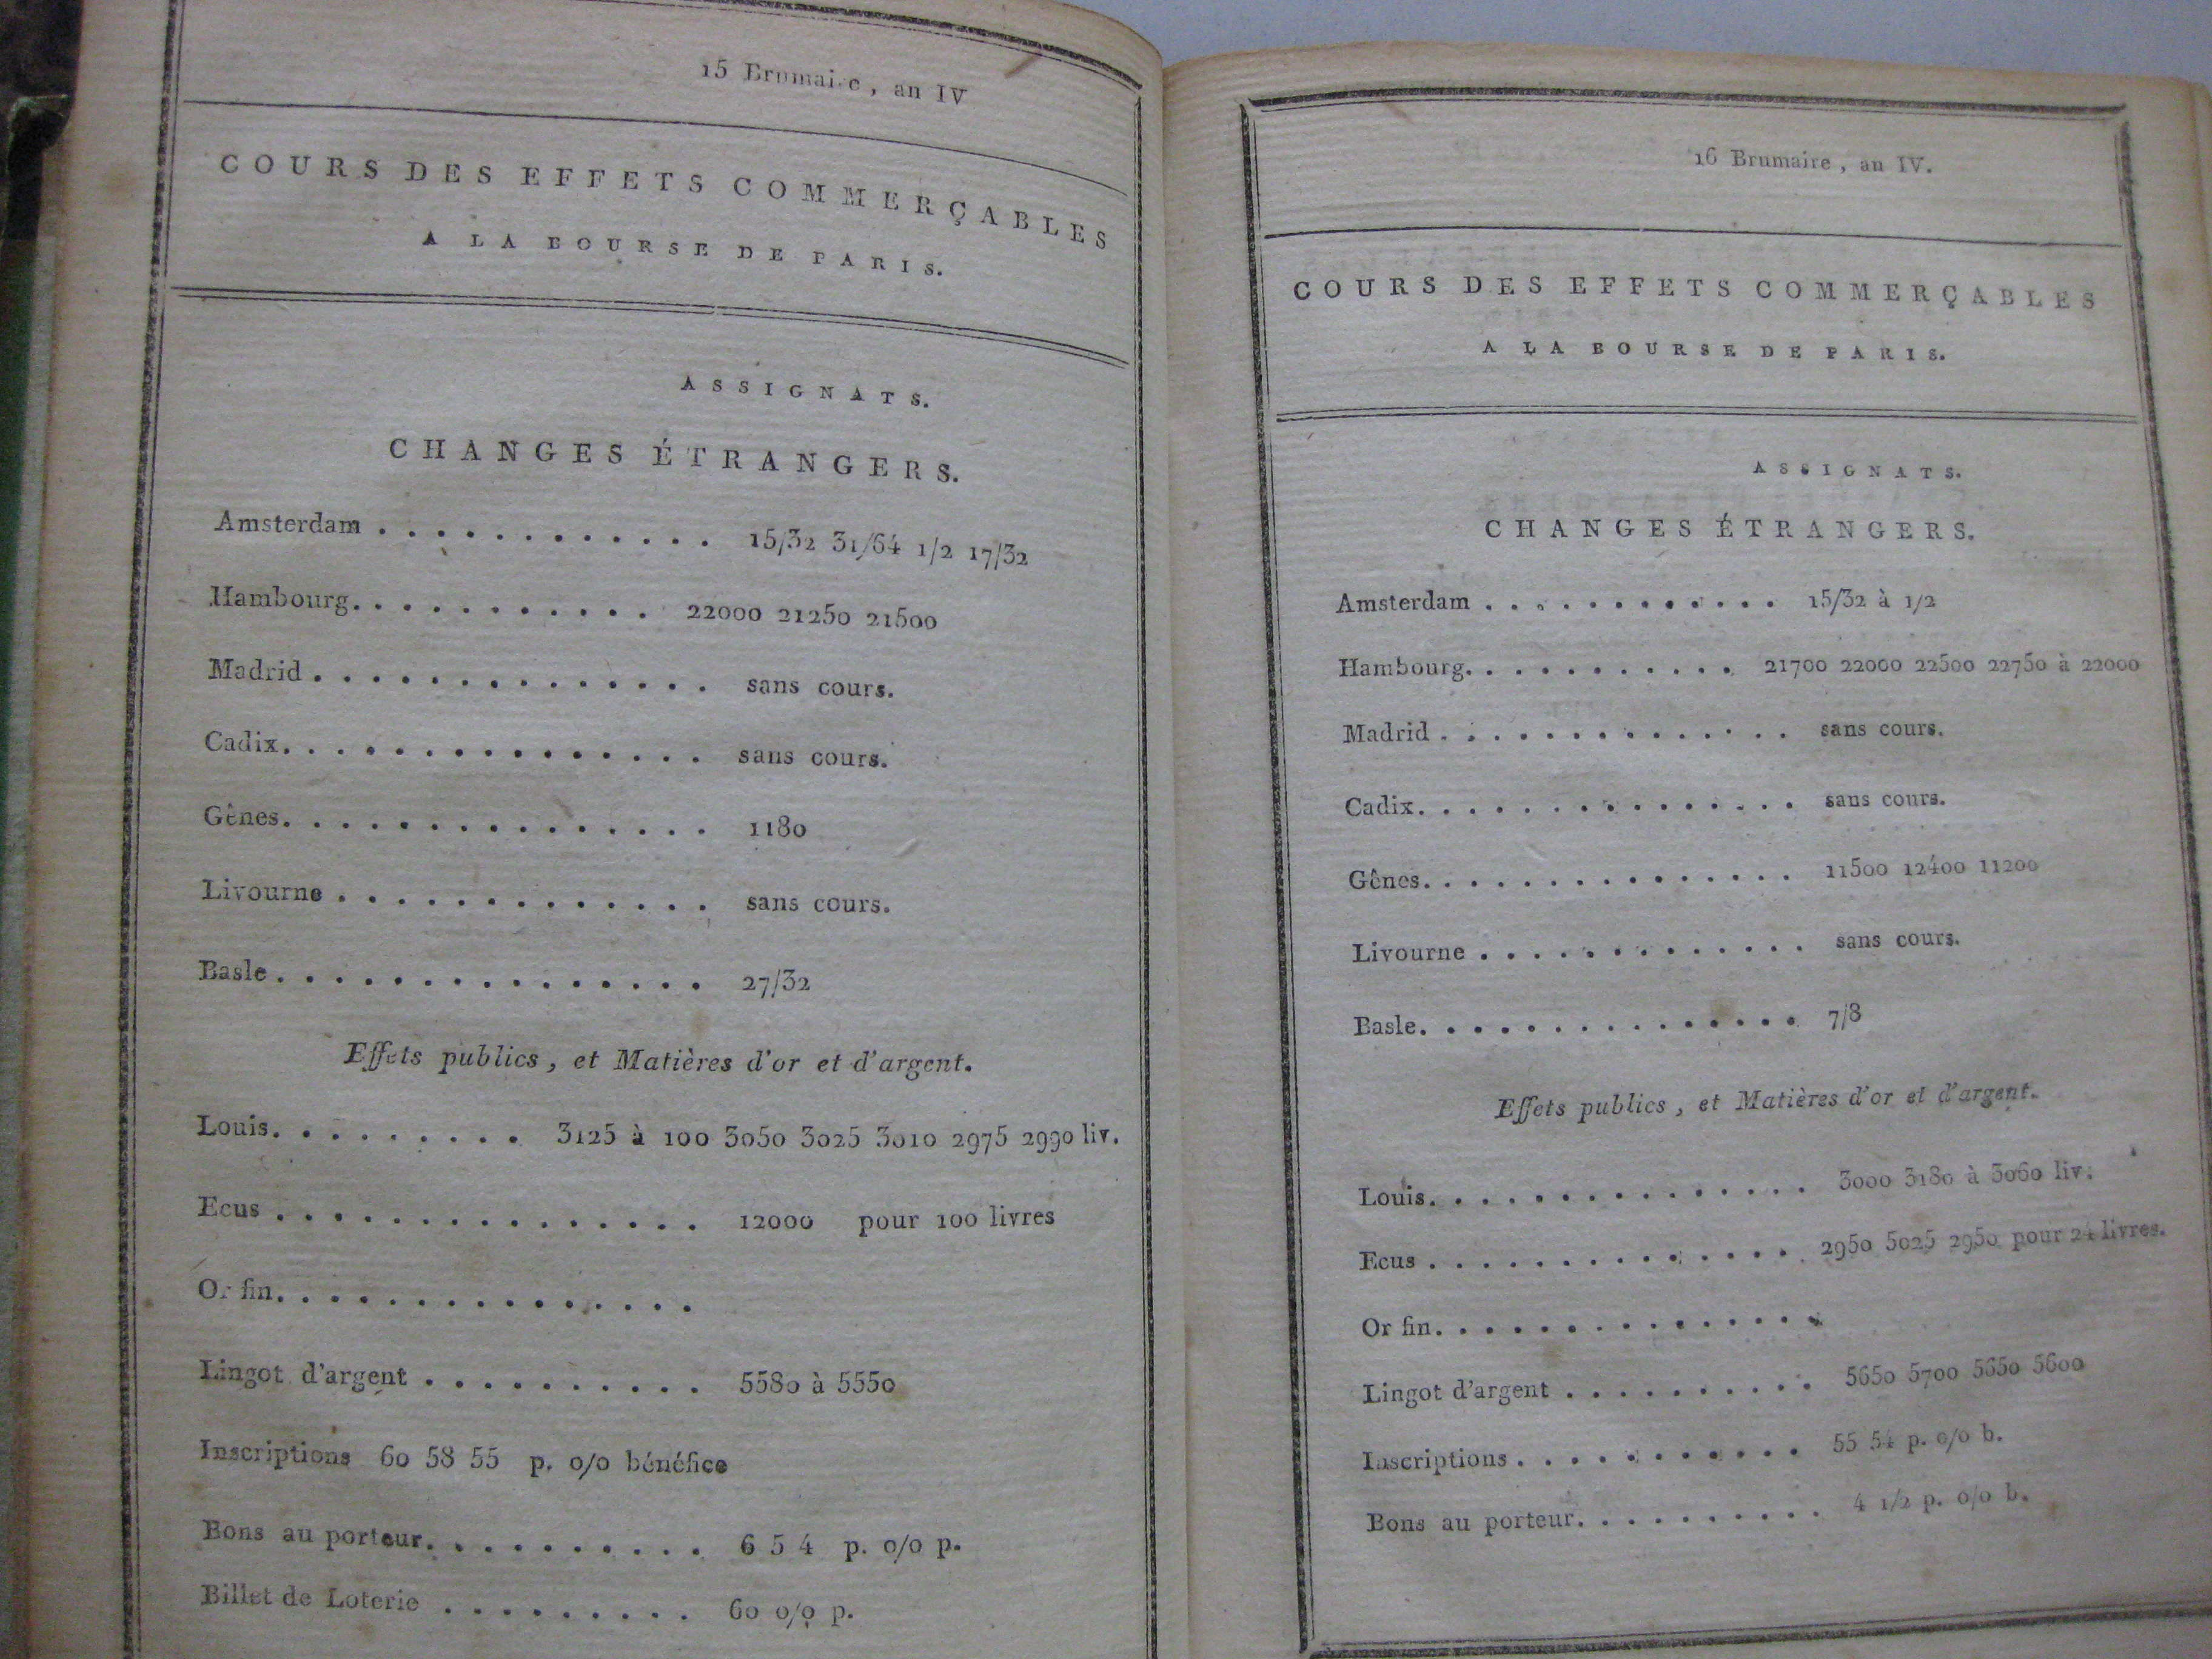 15 Brumaire, an IV
COURS DES EFFETS COMMERÇABLES
A LA BOURSE DE PARIS.
ASSIGNATS.
CHANGES ÉTRANGERS.
Amsterdam . . . . . . . . . . . . 15/32 31/64 1/2 17/32
Hambourg. . . . . . . . . . . 22000 21250 21500
Madrid . . . . . . . . . . . . . . sans cours.
Cadix. . . . . . . . . . . . . . . sans cours.
Gênes. . . . . . . . . . . . . . . 1180
Livourne . . . . . . . . . . . . . sans cours.
Basle . . . . . . . . . . . . . . . 27/32
Effets publics, et Matières d'or et d'argent.
Louis. . . . . . . . . 3125 à 100 3050 3025 3010 2975 2990 liv.
Ecus . . . . . . . . . . . . . . . 12000 pour 100 livres
Or fin. . . . . . . . . . . . . . .
Lingot d'argent . . . . . . . . . . 5580 à 5550
Inscriptions 60 58 55 p. o/o bénéfice
Bons au porteur. . . . . . . . . . 6 5 4 p. o/o p.
Billet de Loterie . . . . . . . . . 60 o/o p.
16 Brumaire, an IV.
COURS DES EFFETS COMMERÇABLES
A LA BOURSE DE PARIS.
ASSIGNATS.
CHANGES ÉTRANGERS.
Amsterdam . . . . . . . . . . . . 15/32 à 1/2
Hambourg. . . . . . . . . . . 21700 22000 22500 22750 à 22000
Madrid . . . . . . . . . . . . . . sans cours.
Cadix. . . . . . . . . . . . . . . sans cours.
Gênes. . . . . . . . . . . . . . . 11500 12400 11200
Livourne . . . . . . . . . . . . . sans cours.
Basle. . . . . . . . . . . . . . . 7/8
Effets publics, et Matières d'or et d'argent.
Louis. . . . . . . . . . . . . . . 3000 3180 à 3060 liv.
Ecus . . . . . . . . . . . . . . 2950 5025 2950 pour 24 livres.
Or fin. . . . . . . . . . . . . . .
Lingot d'argent . . . . . . . . . . 5650 5700 5650 5600
Inscriptions . . . . . . . . . . . 55 54 p. o/o b.
Bons au porteur. . . . . . . . . . 4 1/2 p. o/o b.